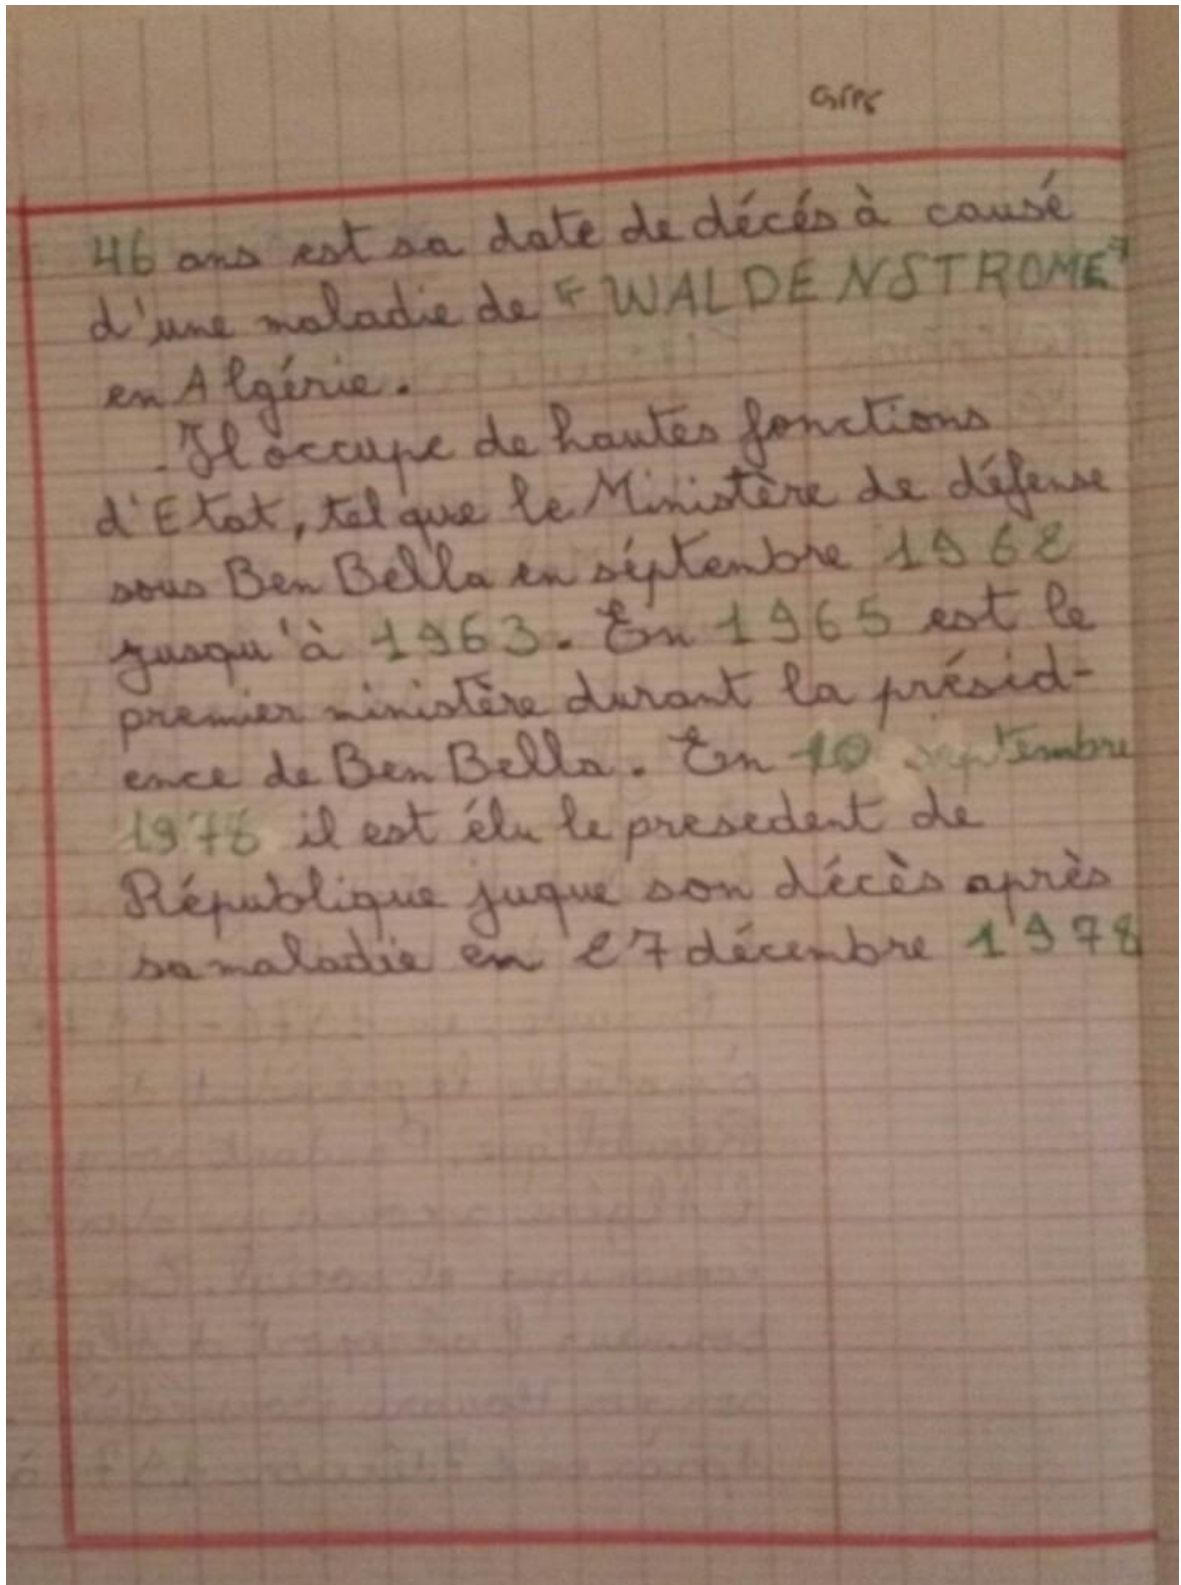 46 ans est sa date de décés à causé
d'une maladie de "WALDENSTROME"
en Algérie.
. Il occupe de hautes fonctions
d'Etat, tel que le Ministère de défense
sous Ben Bella en séptembre 1962
jusqu'à 1963. En 1965 est le
premier ministère durant la présid-
ence de Ben Bella. En 10 septembre
1976 il est élu le presedent de
République juque son décès après
sa maladie en 27 décembre 1978